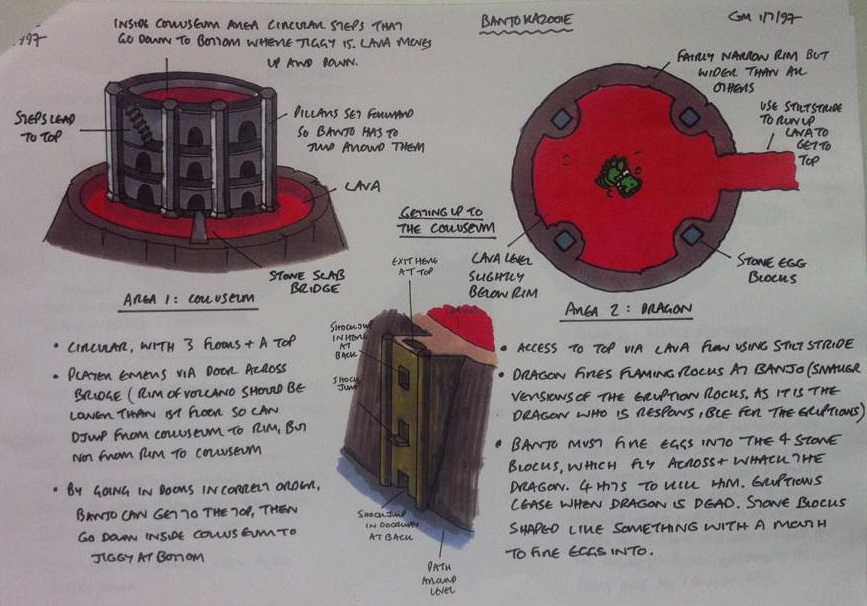 BANJO KAZOOIE
GM 1/7/97
/97
INSIDE COLLUSEUM AREA CIRCULAR STEPS THAT
GO DOWN TO BOTTOM WHERE JIGGY IS. LAVA MOVES
UP AND DOWN.
STEPS LEAD
TO TOP
PILLARS SET FORWARD
SO BANJO HAS TO
JUMP AROUND THEM
LAVA
STONE SLAB
BRIDGE
AREA 1: COLLUSEUM
• CIRCULAR, WITH 3 FLOORS + A TOP
• PLAYER ENTERS VIA DOOR ACROSS
BRIDGE (RIM OF VOLCANO SHOULD BE
LOWER THAN 1ST FLOOR SO CAN
DJUMP FROM COLLUSEUM TO RIM, BUT
NOT FROM RIM TO COLLUSEUM
• BY GOING IN DOORS IN CORRECT ORDER,
BANJO CAN GET TO THE TOP, THEN
GO DOWN INSIDE COLLUSEUM TO
JIGGY AT BOTTOM
GETTING UP TO
THE COLLUSEUM
EXIT HERE
AT TOP
SHOCK JUMP
IN HERE
AT
BACK
SHOCK
JUMP
SHOCK JUMP
IN DOORWAY
AT BACK
PATH
AROUND
LEVEL
FAIRLY NARROW RIM BUT
WIDER THAN ALL
OTHERS
USE STILT STRIDE
TO RUN UP
LAVA TO
GET TO
TOP
LAVA LEVEL
SLIGHTLY
BELOW RIM
STONE EGG
BLOCKS
AREA 2: DRAGON
• ACCESS TO TOP VIA LAVA FLOW USING STILT STRIDE
• DRAGON FIRES FLAMING ROCKS AT BANJO (SMALLER
VERSIONS OF THE ERUPTION ROCKS, AS IT IS THE
DRAGON WHO IS RESPONSIBLE FOR THE ERUPTIONS)
• BANJO MUST FIRE EGGS INTO THE 4 STONE
BLOCKS, WHICH FLY ACROSS + WHACK THE
DRAGON. 4 HITS TO KILL HIM. ERUPTIONS
CEASE WHEN DRAGON IS DEAD. STONE BLOCKS
SHAPED LIKE SOMETHING WITH A MOUTH
TO FIRE EGGS INTO.